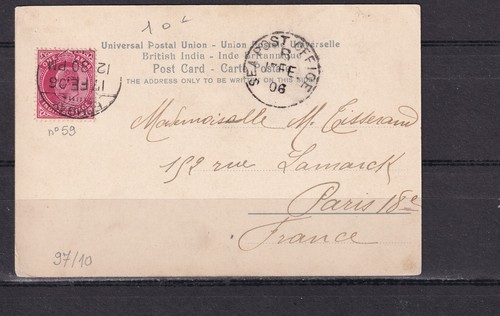 10
Universal Postal Union - Union Postale Universelle
British India - Inde Britannique
Post Card - Carte Postale
THE ADDRESS ONLY TO BE WRITTEN ON THIS SIDE
SEA POST OFFICE
B
17 FE
06
BOMBAY
17 FE 06
12 30 PM
nº 59
Mademoiselle M. Tisserand
152 rue Lamarck
Paris 18e
France
97/10